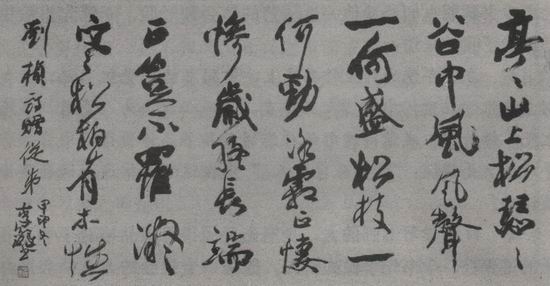 亭〻山上松瑟〻
谷中風風聲
一何盛松枝一
何勁冰霜正悽
慘歲終長端
正豈不罹凝
寒松柏有本性
劉楨詩贈從弟
甲申冬